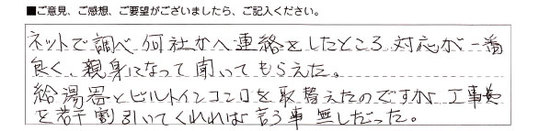 ■ご意見、ご感想、ご要望がございましたら、ご記入ください。
ネットで調べ、何社かへ連絡をしたところ 対応が一番
良く、親身になって聞いてもらえた。
給湯器とビルトインコンロを取替えたのですが 工事費
を若干割引いてくれれば言う事無しだった。